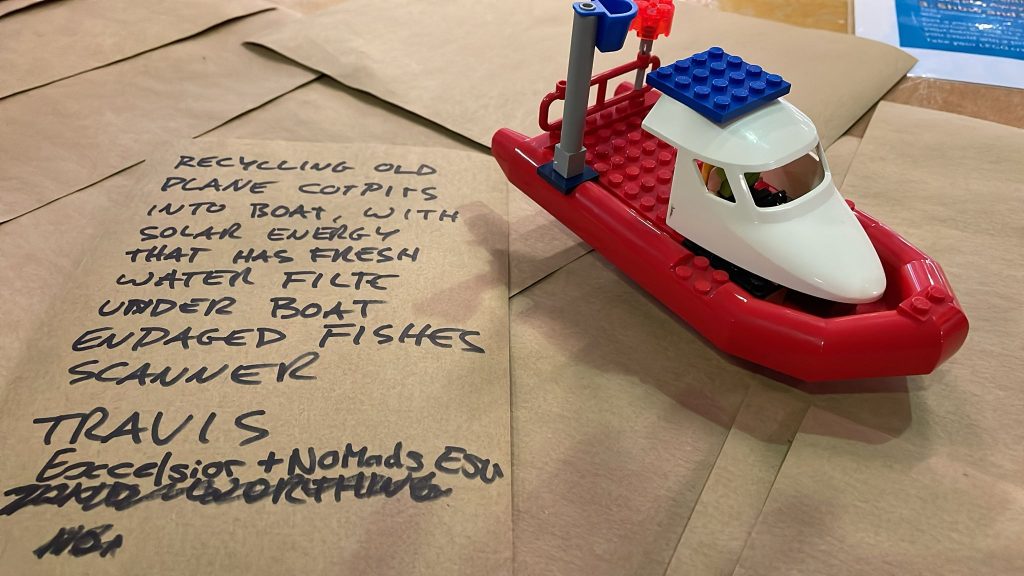 RECYCLLING OLD
PLANE COTPITS
INTO BOAT, WITH
SOLAR ENERGY
THAT HAS FRESH
WATER FILTE
UNDER BOAT
ENDAGED FISHES
SCANNER
TRAVIS
Exccelsior + NoMads ESU